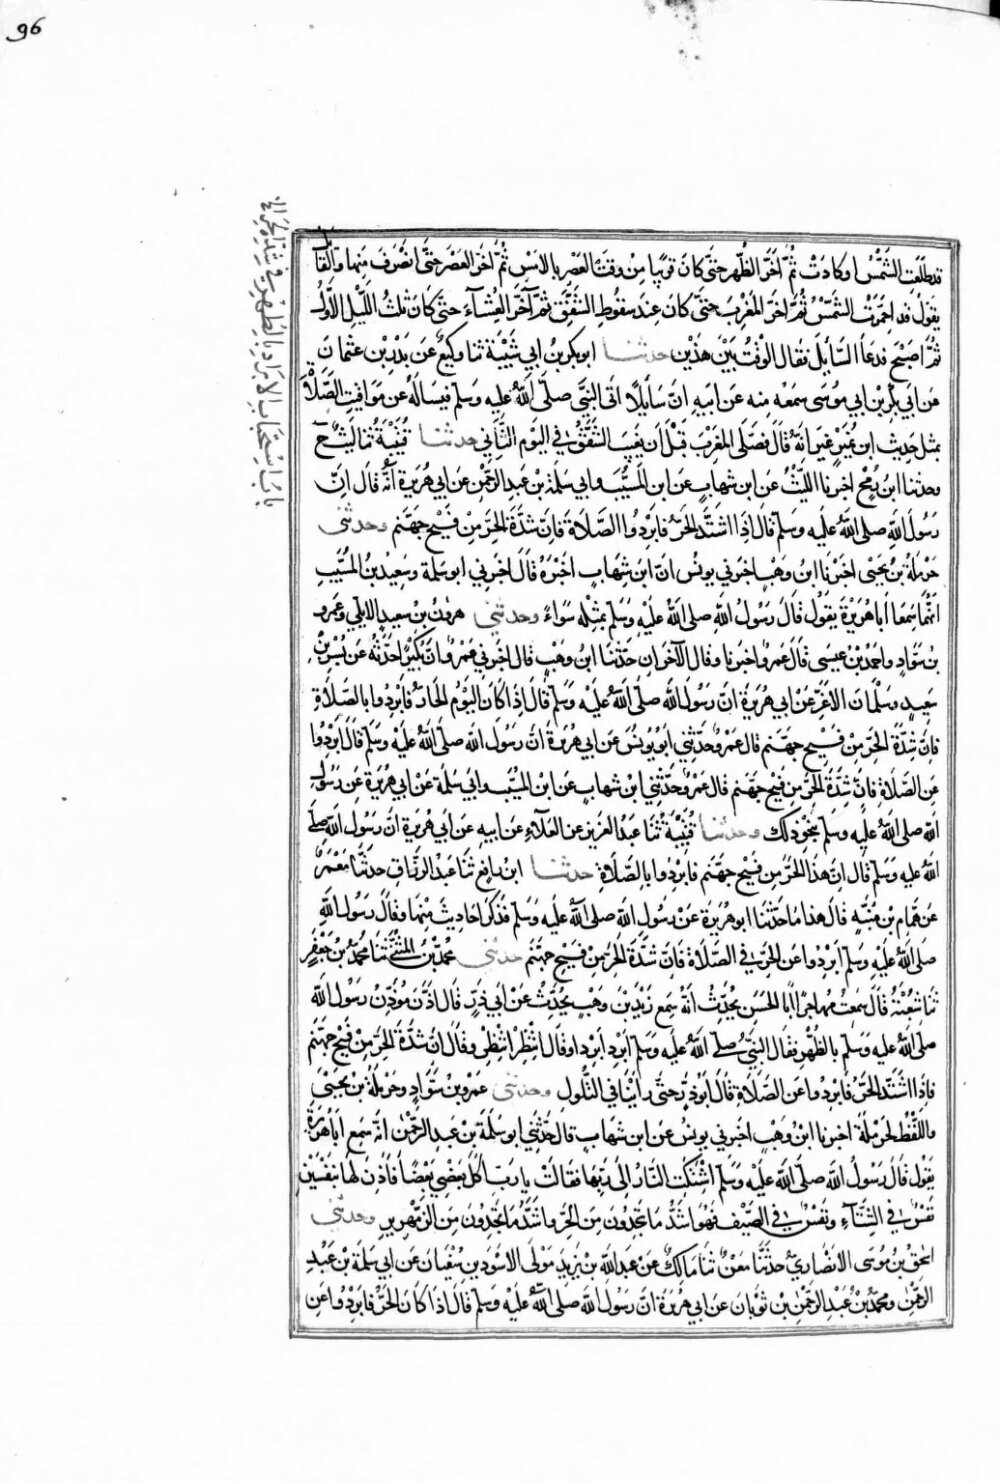 96
باب استحباب الابراد بالظهر في شدة الحر الخ
قد طلعت الشمس او كادت ثم اخر الظهر حتى كان قريبا من وقت العصر بالامس ثم اخر العصر حتى انصرف منها والقائل
يقول قد احمرت الشمس ثم اخر المغرب حتى كان عند سقوط الشفق ثم اخر العشاء حتى كان ثلث الليل الاول
ثم اصبح فدعا السائل فقال الوقت بين هذين حدثنا ابو بكر بن ابي شيبة ثنا وكيع عن بدر بن عثمان
عن ابي بكر بن ابي موسى سمعه منه عن ابيه ان سائلا اتى النبي صلى الله عليه وسلم فيساله عن مواقيت الصلاة
بمثل حديث ابن نمير غير انه قال فصلى المغرب قبل ان يغيب الشفق في اليوم الثاني حدثنا قتيبة ثنا ليث ح
وحدثنا ابن رمح اخبرنا الليث عن ابن شهاب عن ابن المسيب وابي سلمة بن عبد الرحمن عن ابي هريرة انه قال ان
رسول الله صلى الله عليه وسلم قال اذا اشتد الحر فابردوا الصلاة فان شدة الحر من فيح جهنم وحدثني
حرملة بن يحيى اخبرنا ابن وهب اخبرني يونس ان ابن شهاب اخبره قال اخبرني ابو سلمة وسعيد بن المسيب
انهما سمعا ابا هريرة يقول قال رسول الله صلى الله عليه وسلم بمثله سواء وحدثني هرون بن سعيد الايلي وعمرو
بن سواد واحمد بن عيسى قال عمرو اخبرنا وقال الآخران حدثنا ابن وهب قال اخبرني عمرو ان بكيرا حدثه عن بسر بن
سعيد وسلمان الاغر عن ابي هريرة ان رسول الله صلى الله عليه وسلم قال اذا كان اليوم الحار فابردوا بالصلاة
فان شدة الحر من فيح جهنم قال عمرو وحدثني ابو يونس عن ابي هريرة ان رسول الله صلى الله عليه وسلم قال ابردوا
عن الصلاة فان شدة الحر من فيح جهنم قال عمرو وحدثني ابن شهاب عن ابن المسيب وابي سلمة عن ابي هريرة عن رسول
الله صلى الله عليه وسلم بنحو ذلك وحدثنا قتيبة ثنا عبد العزيز عن العلاء عن ابيه عن ابي هريرة ان رسول الله صلى
الله عليه وسلم قال ان هذا الحر من فيح جهنم فابردوا بالصلاة حدثنا ابن رافع ثنا عبد الرزاق حدثنا معمر
عن همام بن منبه قال هذا ما حدثنا ابو هريرة عن رسول الله صلى الله عليه وسلم فذكر احاديث منها وقال رسول الله
صلى الله عليه وسلم ابردوا عن الحر في الصلاة فان شدة الحر من فيح جهنم حدثني محمد بن المثنى ثنا محمد بن جعفر
ثنا شعبة قال سمعت مهاجرا ابا الحسن يحدث انه سمع زيد بن وهب يحدث عن ابي ذر قال اذن موذن رسول الله
صلى الله عليه وسلم بالظهر فقال النبي صلى الله عليه وسلم ابرد ابرد او قال انتظر انتظر وقال ان شدة الحر من فيح جهنم
فاذا اشتد الحر فابردوا عن الصلاة قال ابو ذر حتى راينا في التلول وحدثني عمرو بن سواد وحرملة بن يحيى
واللفظ لحرملة اخبرنا ابن وهب اخبرني يونس عن ابن شهاب قال حدثني ابو سلمة بن عبد الرحمن انه سمع ابا هريرة
يقول قال رسول الله صلى الله عليه وسلم اشتكت النار الى ربها فقالت يا رب اكل بعضي بعضا فاذن لها بنفسين
نفس في الشتاء ونفس في الصيف فهو اشد ما تجدون من الحر واشد ما تجدون من الزمهرير وحدثني
اسحق بن موسى الانصاري حدثنا معن ثنا مالك عن عبد الله بن يزيد مولى الاسود بن سفيان عن ابي سلمة بن عبد
الرحمن ومحمد بن عبد الرحمن بن ثوبان عن ابي هريرة ان رسول الله صلى الله عليه وسلم قال اذا كان الحر فابردوا عن